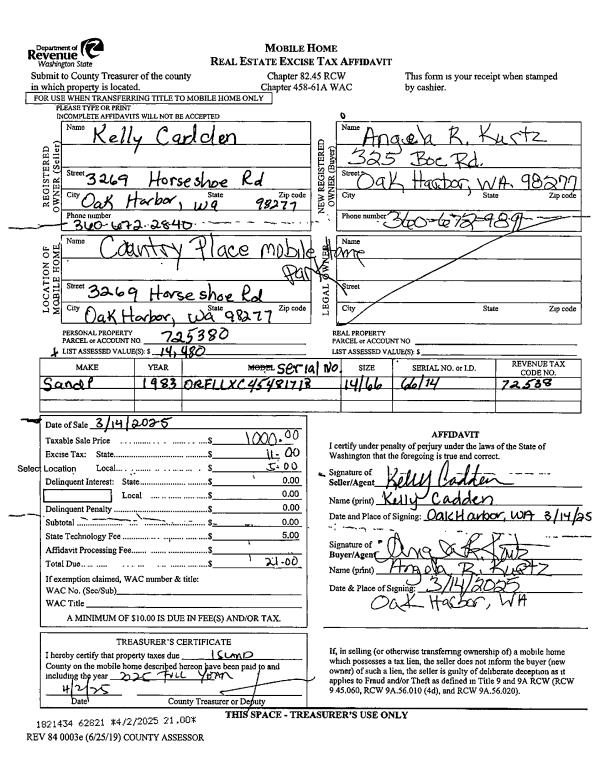 Department of
Revenue
Washington State
Submit to County Treasurer of the county
in which property is located.
MOBILE HOME
REAL ESTATE EXCISE TAX AFFIDAVIT
Chapter 82.45 RCW
Chapter 458-61A WAC
This form is your receipt when stamped
by cashier.
FOR USE WHEN TRANSFERRING TITLE TO MOBILE HOME ONLY
PLEASE TYPE OR PRINT
INCOMPLETE AFFIDAVITS WILL NOT BE ACCEPTED
REGISTERED OWNER (Seller)
Name Kelly Cadden
Street 3269 Horseshoe Rd
City State Zip code
Oak Harbor, wa 98277
Phone number
360-672-2840
NEW REGISTERED OWNER (Buyer)
Name Angela R. Kurtz
325 Boe Rd.
Street Oak Harbor, WA 98277
City State Zip code
Phone number 360-672-989
LOCATION OF MOBILE HOME
Name Country Place mobile Home
Park
Street 3269 Horseshoe Rd
City State Zip code
Oak Harbor, wa 98277
LEGAL OWNER
Name
Street
City State Zip code
PERSONAL PROPERTY
PARCEL or ACCOUNT NO 725380
LIST ASSESSED VALUE(S): $ 14,480
REAL PROPERTY
PARCEL or ACCOUNT NO
LIST ASSESSED VALUE(S): $
MAKE YEAR MODEL Serial No. SIZE SERIAL NO. or I.D. REVENUE TAX CODE NO.
SandP 1983 ORFLLXC45481713 14/66 66/14 72538
Date of Sale 3/14/2025
Taxable Sale Price $ 1000.00
Excise Tax: State $ 11.00
Select Location Local $ 5.00
Delinquent Interest: State $ 0.00
Local $ 0.00
Delinquent Penalty $ 0.00
Subtotal $ 0.00
State Technology Fee $ 5.00
Affidavit Processing Fee $
Total Due $ 21.00
If exemption claimed, WAC number & title:
WAC No. (Sec/Sub)
WAC Title
A MINIMUM OF $10.00 IS DUE IN FEE(S) AND/OR TAX.
AFFIDAVIT
I certify under penalty of perjury under the laws of the State of
Washington that the foregoing is true and correct.
Signature of
Seller/Agent Kelly Cadden
Name (print) Kelly Cadden
Date and Place of Signing: Oak Harbor, WA 3/14/25
Signature of
Buyer/Agent Angela R Kurtz
Name (print) Angela R. Kurtz
Date & Place of Signing: 3/14/2025
Oak Harbor, WA
TREASURER'S CERTIFICATE
I hereby certify that property taxes due ISLAND
County on the mobile home described hereon have been paid to and
including the year 2025 FULL YEAR
4/2/25
Date County Treasurer or Deputy
If, in selling (or otherwise transferring ownership of) a mobile home
which possesses a tax lien, the seller does not inform the buyer (new
owner) of such a lien, the seller is guilty of deliberate deception as it
applies to Fraud and/or Theft as defined in Title 9 and 9A RCW (RCW
9.45.060, RCW 9A.56.010 (4d), and RCW 9A.56.020).
THIS SPACE - TREASURER'S USE ONLY
1821434 62821 *4/2/2025 21.00*
REV 84 0003e (6/25/19) COUNTY ASSESSOR